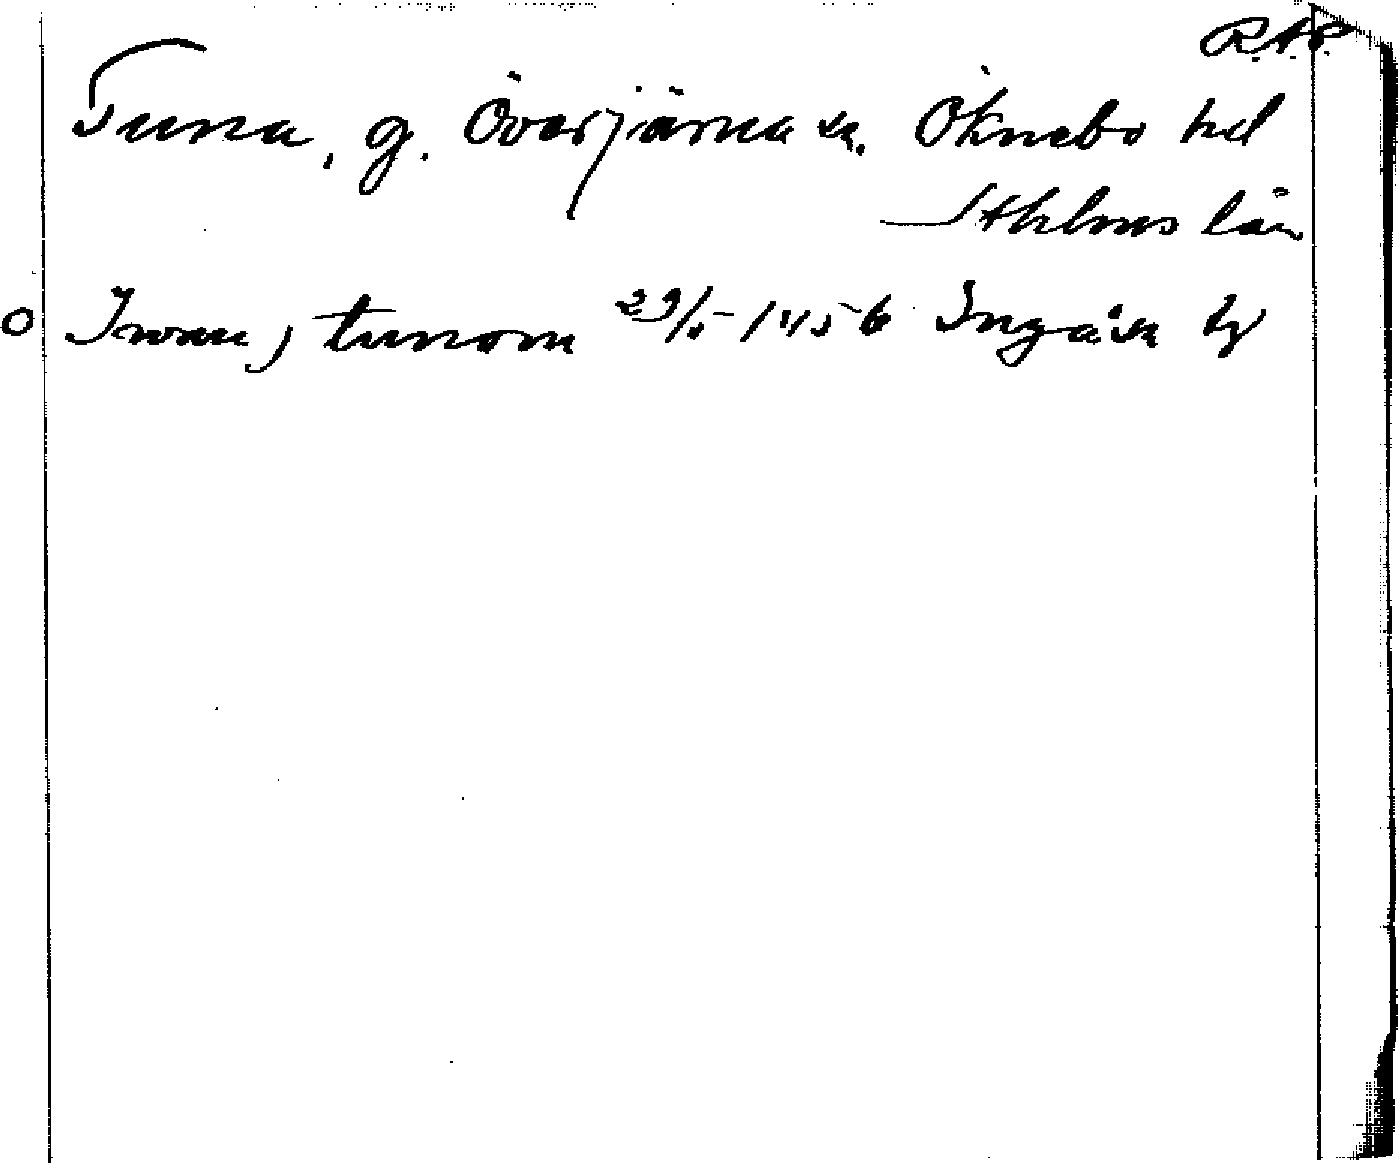 R.A.P.
Tuna, g. Överjärna sn. Öknebo hd
Sthlms län
o Iwan j tunom 29/5 1456 Ingå sn